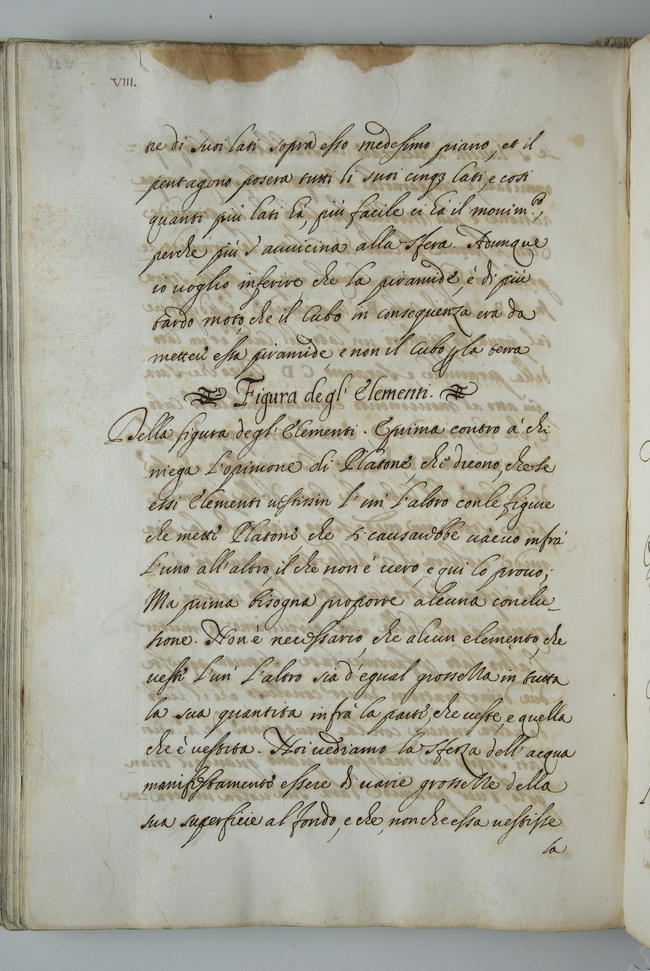 VIII.
tre di suoi lati sopra d'esso medesimo piano, et il
pentagono poserà tutti li suoi cinq3 lati, e così
quanti più lati hà, più facile ci hà il movim.to,
perche più s'auuicina alla sfera. Adunque
io uoglio inferire che la piramide, è di più
tardo moto che il Cubo in consequenza era da
metterui essa piramide, e non il Cubo p la terra
Figura degl' Elementi.
Della figura degl' Elementi. E prima contro à chi
niega l'opinione di Platone, che dicono, che se
essi Elementi uestissin l'un' l'altro con le figure
che mette Platone che si causarebbe uacuo infrà
l'uno all'altro, il che non è uero, e qui lo prouo;
Ma prima bisogna proporre alcuna conclu=
sione. Non è necessario, che alcun elemento, che
ueste l'un' l'altro sia d'equal grossezza in tutta
la sua quantita infrà la parte, che ueste, e quella
che è uestita. Noi uediamo la Sferza dell'acqua
manifestamente essere di uarie grossezze della
sua superficie al fondo, e che, non che essa uestisse
la